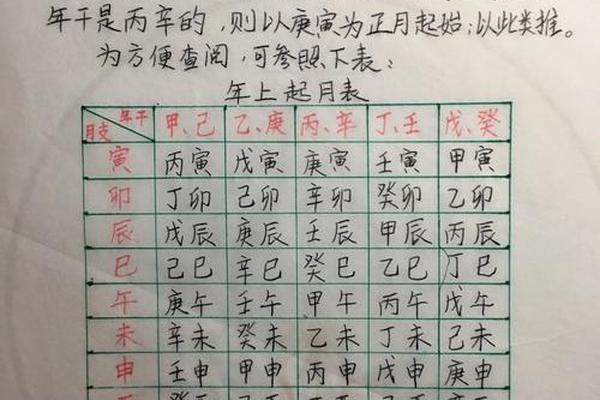 年干是丙辛的，则以庚寅为正月起始；以此类推。
为方便查阅，可参照下表：
年上起月表
年干 月支 甲、己 乙、庚 丙、辛 丁、壬 戊、癸
寅 丙寅 戊寅 庚寅 壬寅 甲寅
卯 丁卯 己卯 辛卯 癸卯 乙卯
辰 戊辰 庚辰 壬辰 甲辰 丙辰
巳 己巳 辛巳 癸巳 乙巳 丁巳
午 庚午 壬午 甲午 丙午 戊午
未 辛未 癸未 乙未 丁未 己未
申 壬申 甲申 丙申 戊申 庚申